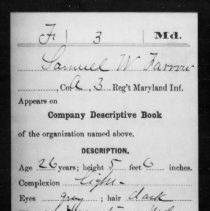 F | 3 | Md.
Samuel W Farrow
, Co. A, 3 Reg't Maryland Inf.
Appears on
Company Descriptive Book
of the organization named above.
DESCRIPTION.
Age 26 years; height 5 feet 6 inches.
Complexion Light
Eyes gray; hair dark